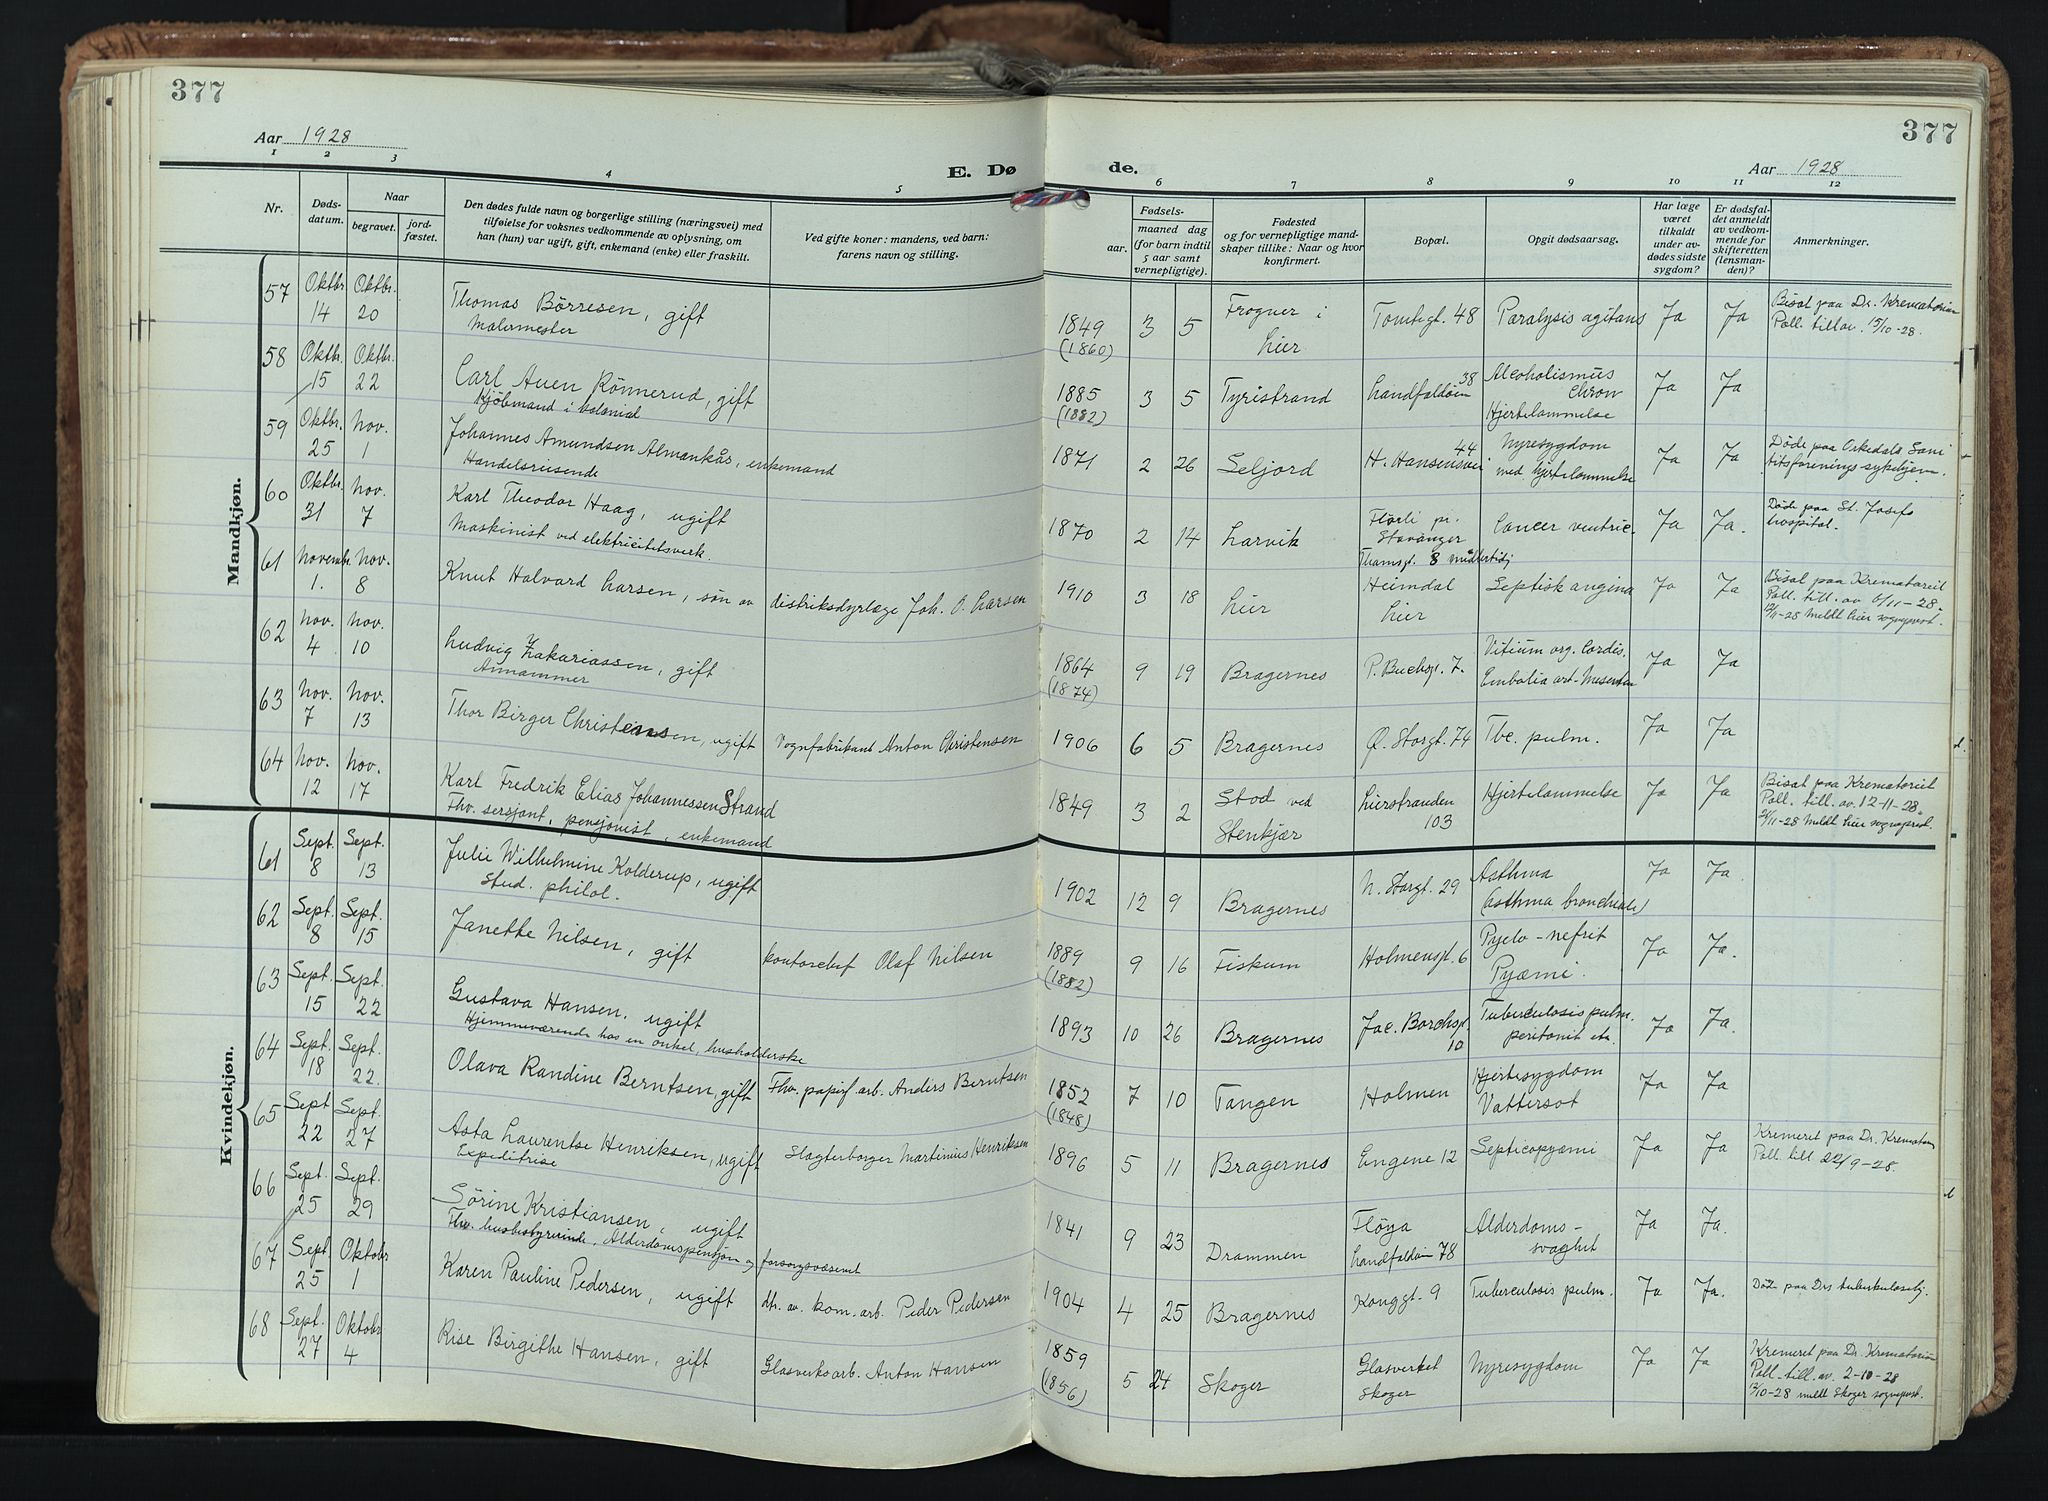 377
377
Aar 1928
Aar 1928
E. Dø
de.
1 2 3 4 5 6 7 8 9 10 11 12
Nr.
Dødsdatum.
Naar
begravet.
jordfæstet.
Den dødes fulde navn og borgerlige stilling (næringsvei) med
tilføielse for voksnes vedkommende av oplysning, om
han (hun) var ugift, gift, enkemand (enke) eller fraskilt.
Ved gifte koner: mandens, ved barn:
farens navn og stilling.
Fødsels-
aar. maaned dag
(for barn indtil
5 aar samt
vernepligtige).
Fødested
og for vernepligtige mand-
skaper tillike: Naar og hvor
konfirmert.
Bopæl.
Opgit dødsaarsag.
Har læge
været
tilkaldt
under av-
dødes sidste
sygdom?
Er dødsfal-
det anmeldt
av vedkom-
mende for
skifteretten
(lensman-
den)?
Anmerkninger.
Mandkjøn.
57 Oktbr. 14 Oktbr. 20 Thomas Börresen, gift
Malermester
1849 (1860) 3 5 Frogner i Lier Tomtegt. 48 Paralysis agitans Ja Ja Bisat paa Dr. Krematorium
Poll. tillat 15/10-28.
58 Oktbr. 15 Oktbr. 22 Carl Auen Rönnerud, gift
Kjöbmand i kolonial
1885 (1882) 3 5 Tyristrand Landfaldöen 38 Alcoholismus Chron
Hjertelammelse Ja Ja
59 Oktbr. 25 Nov. 1 Johannes Amundsen Almankås, enkemand
Handelsreisende
1871 2 26 Seljord H. Hansensvei 44 Nyresygdom
med hjertelammelse Ja Ja Döde paa Orkedals Sani
titsforenings sykehjem.
60 Oktbr. 31 Nov. 7 Karl Theodor Haag, ugift
Maskinist ved elektricitetsverk
1870 2 14 Larvik Flörli pr. Stavanger
Thamsgt. 8 midlertidig Cancer ventric. Ja Ja. Döde paa St. Josefs
hospital.
61 November 1. Nov. 8 Knut Halvard Larsen, sön av distriksdyrlæge Joh. O. Larsen
1910 3 18 Lier Heimdal Lier Septisk angina Ja Ja Bisat paa Krematoriet
Poll. till. av 6/11-28.
12/11-28 Meldt Lier sogneprest.
62 Nov. 4 Nov. 10 Ludvig Zakariassen, gift
1864 (1874) 9 19 Bragernes P. Buchsgt. 7. Vitium org. Cordis.
Embolia art. Mesenter Ja Ja
63 Nov. 7 Nov. 13 Thor Birger Christensen, ugift Vognfabrikant Anton Christensen
1906 6 5 Bragernes Ø. Storgt. 74 Tbc. pulm. Ja Ja
64 Nov. 12 Nov. 17 Karl Fredrik Elias Johannessen Strand
Fhv. sersjant, pensjonist, enkemand
1849 3 2 Stod ved Stenkjær Lierstranden 103 Hjertelammelse Ja Ja Bisat paa Krematoriet
Poll. till. av. 12-11-28.
Meldt Lier sogneprest.
Kvindekjøn.
61 Sept. 8 Sept. 13 Julie Wilhelmine Kolderup, ugift
Stud. philol.
1902 12 9 Bragernes N. Storgt. 29 Asthma
(Asthma bronchiale) Ja Ja.
62 Sept. 8 Sept. 15 Janette Nilsen, gift kontorchef Olaf Nilsen
1889 (1882) 9 16 Fiskum Holmensgt. 6 Pyelo-nefrit
Pyæmi. Ja Ja.
63 Sept. 15 Sept. 22 Gustava Hansen. ugift
Hjemmeværende hos en onkel, husholderske
1893 10 26 Bragernes Jac. Borchsgt. 10 Tuberculosis pulm.
peritonit etc. Ja Ja.
64 Sept. 18 Sept. 22. Olava Randine Berntsen, gift Fhv. papirf. arb. Anders Berntsen
1852 (1848) 7 10 Tangen Holmen Hjertesygdom
Vattersot Ja Ja
65 Sept 22 Sept. 27 Asta Laurentse Henriksen, ugift Slagterborger Martinius Henriksen
Expeditrise
1896 5 11 Bragernes Engene 12 Septicopyæmi Ja Ja Kremeret paa Dr. Krematorium
Poll. till 22/9-28.
66 Sept. 25 Sept. 29 Sörine Kristiansen, ugift
Fhv. husbestyrerinde, Alderdomspensjon og forsorgsvæsenet
1841 9 23 Drammen Flöya Landfaldöen 78 Alderdoms-
svaghet Ja Ja.
67 Sept 25 Oktobr 1 Karen Pauline Pedersen, ugift dtr. av kom. arb. Peder Pedersen
1904 4 25 Bragernes Konggt. 9 Tuberculosis pulm. Ja Ja. Död paa Drs tuberkulosehj.
68 Sept. 27 Oktobr 4 Rise Birgithe Hansen, gift Glasverksarb. Anton Hansen
1859 (1856) 5 24 Skoger Glasverket Skoger Nyresygdom Ja Ja Kremeret paa Dr. Krematorium
Poll. till. av. 2-10-28
12/10-28 meldt Skoger sogneprst.